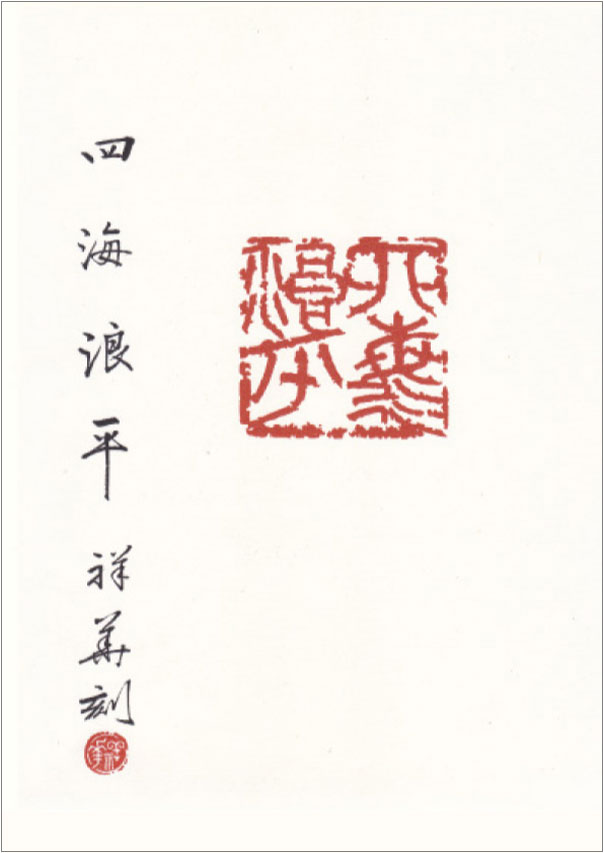 四海浪平
四海浪平 祥華刻